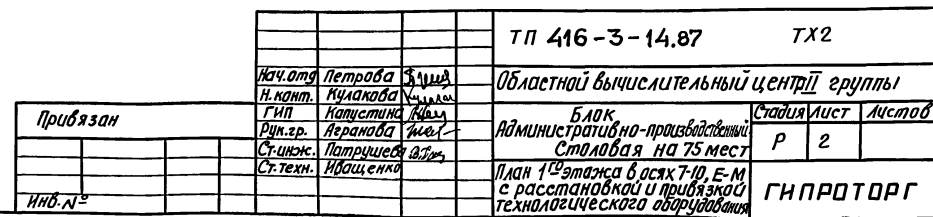 ТП 416-3-14.87 ТХ2
Нач.отд Петрова
Н.конт. Кулакова
ГИП Капустина
Рук.гр. Агранова
Ст.инж. Патрушева
Ст.техн. Иващенко
Областной вычислительный центр II группы
Блок
Административно-производственный
Столовая на 75 мест
Стадия Лист Листов
Р 2
План 1го этажа в осях 7-10, Е-М
с расстановкой и привязкой
технологического оборудования
ГИПРОТОРГ
Привязан
Инв.№